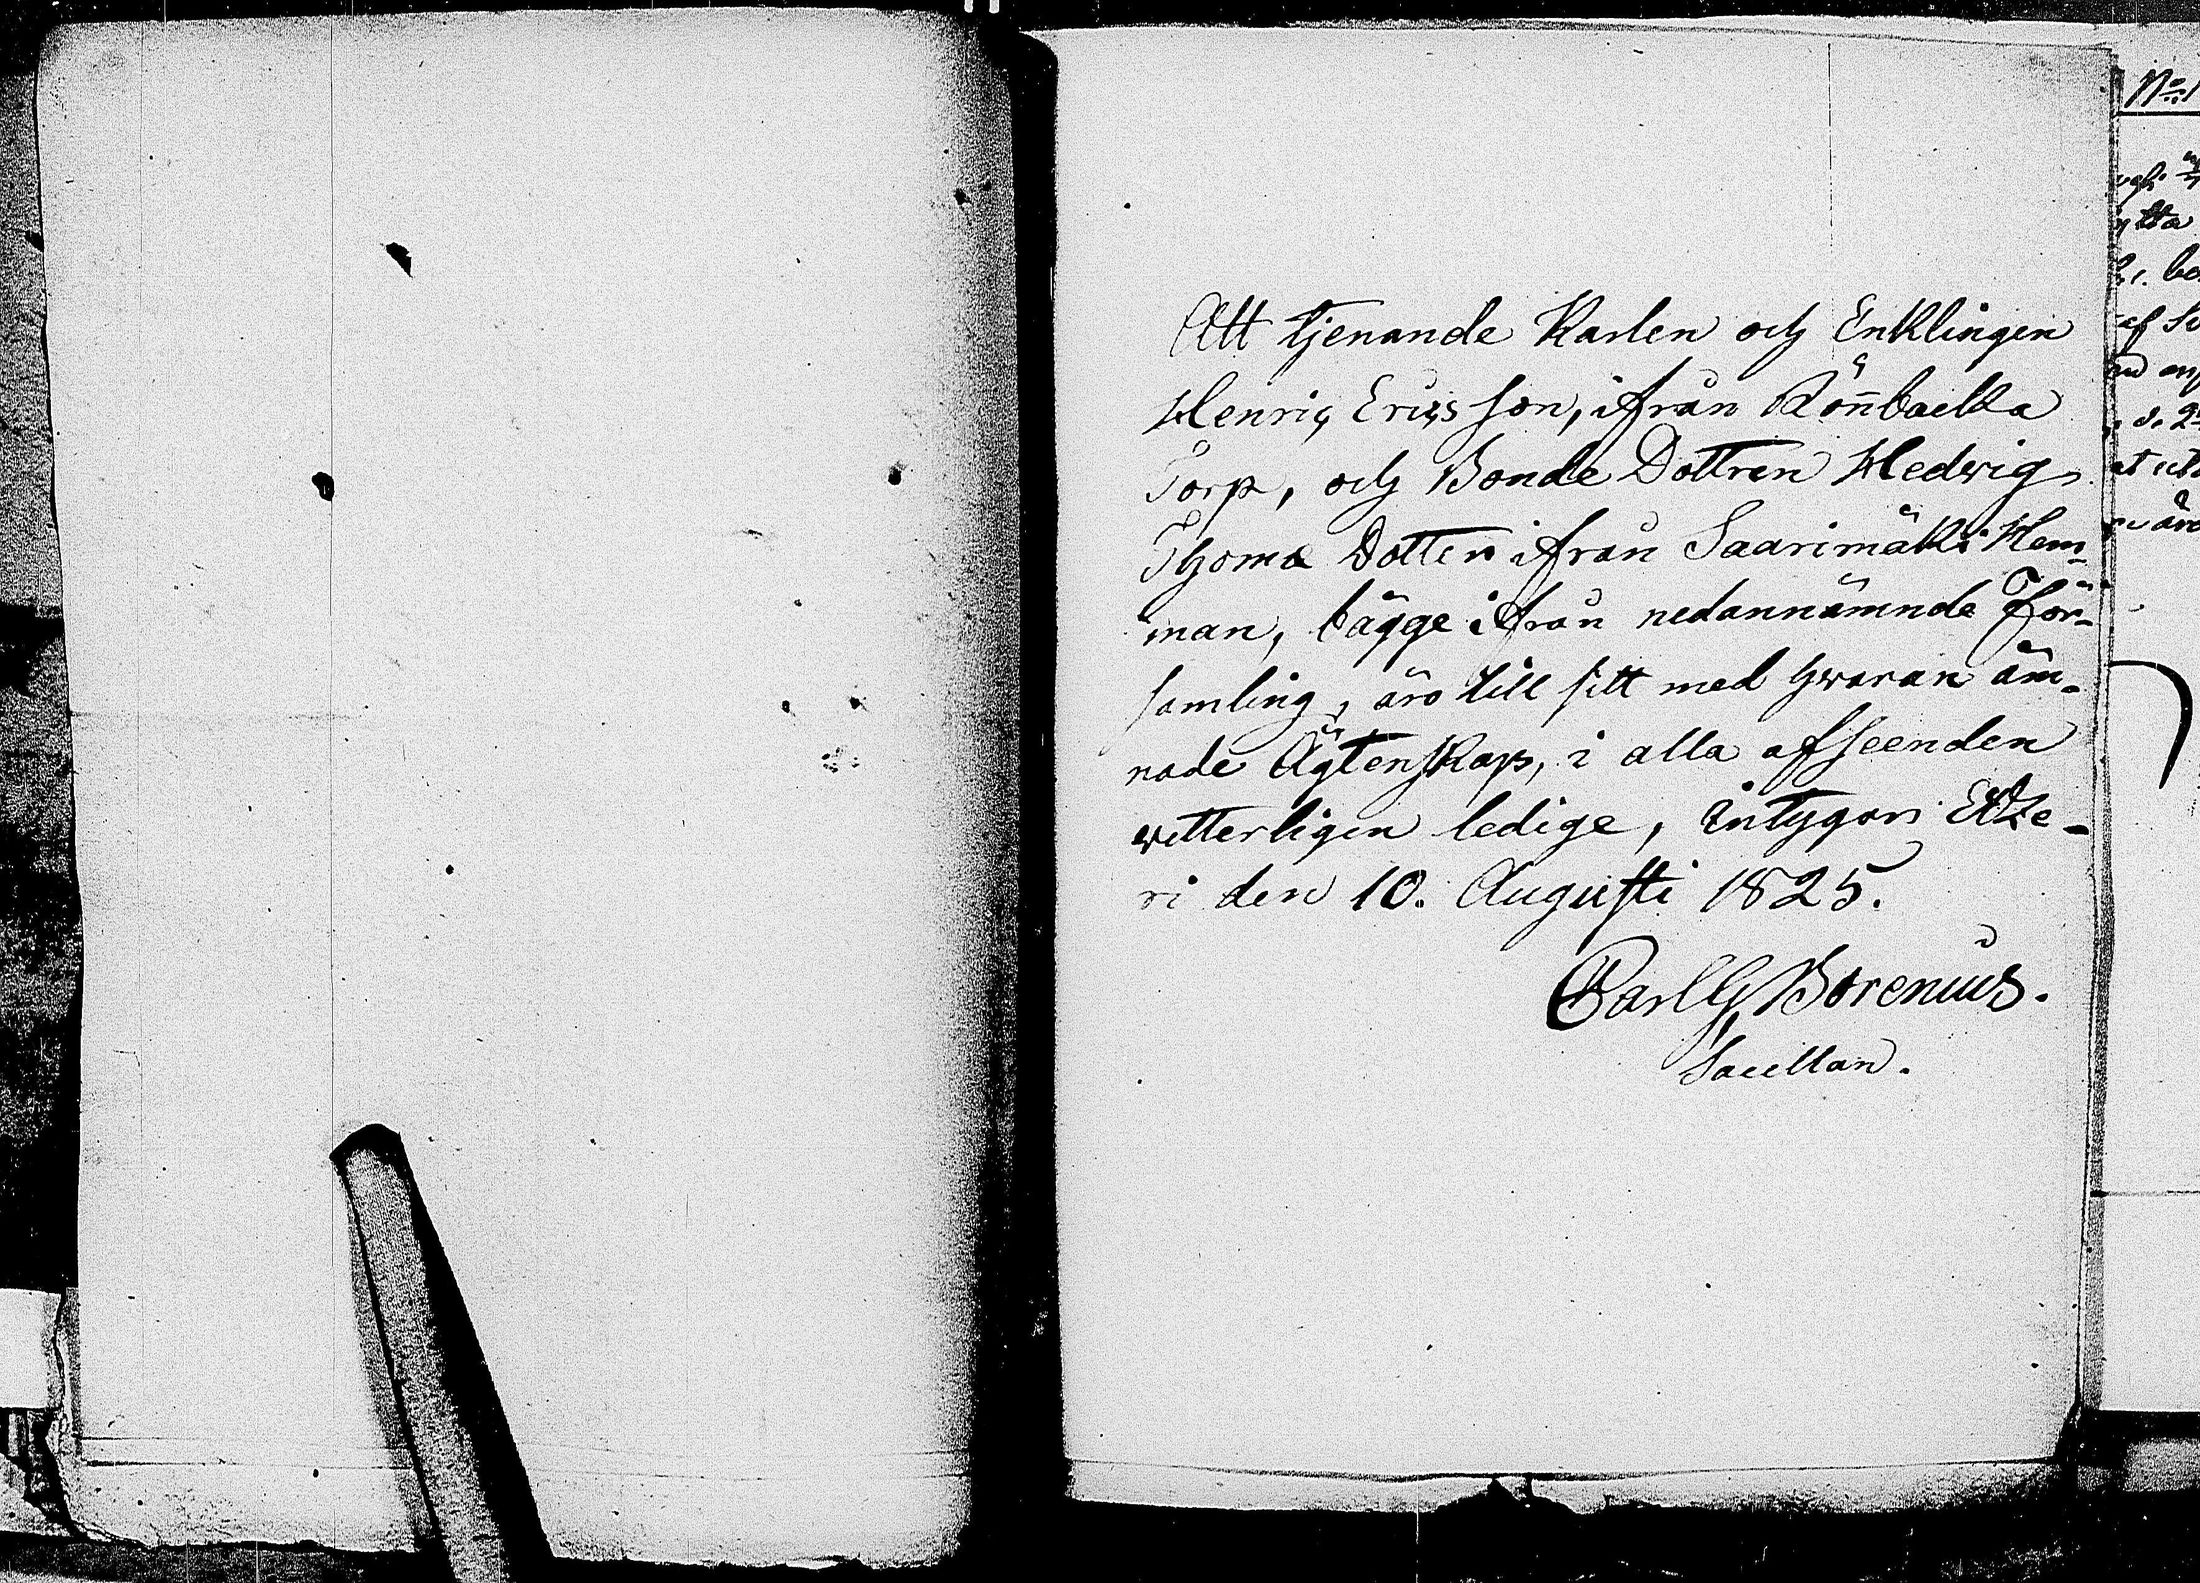 Att tjenande Karlen och Enklingen
Henric Ericsson, ifrån Rönbacka
Torp, och Bonde Dottren Hedvig
Thomæ Dotter ifrån Saarimäki Hem-
man, bägge ifrån nedannämnde För-
samling, äro till sitt med hvaran äm-
nade Ägtenskap, i alla afseenden
vetterligen ledige, intygar Etze-
ri den 10. Augusti 1825.
Carl G Borenius.
Sacellan.
No 1